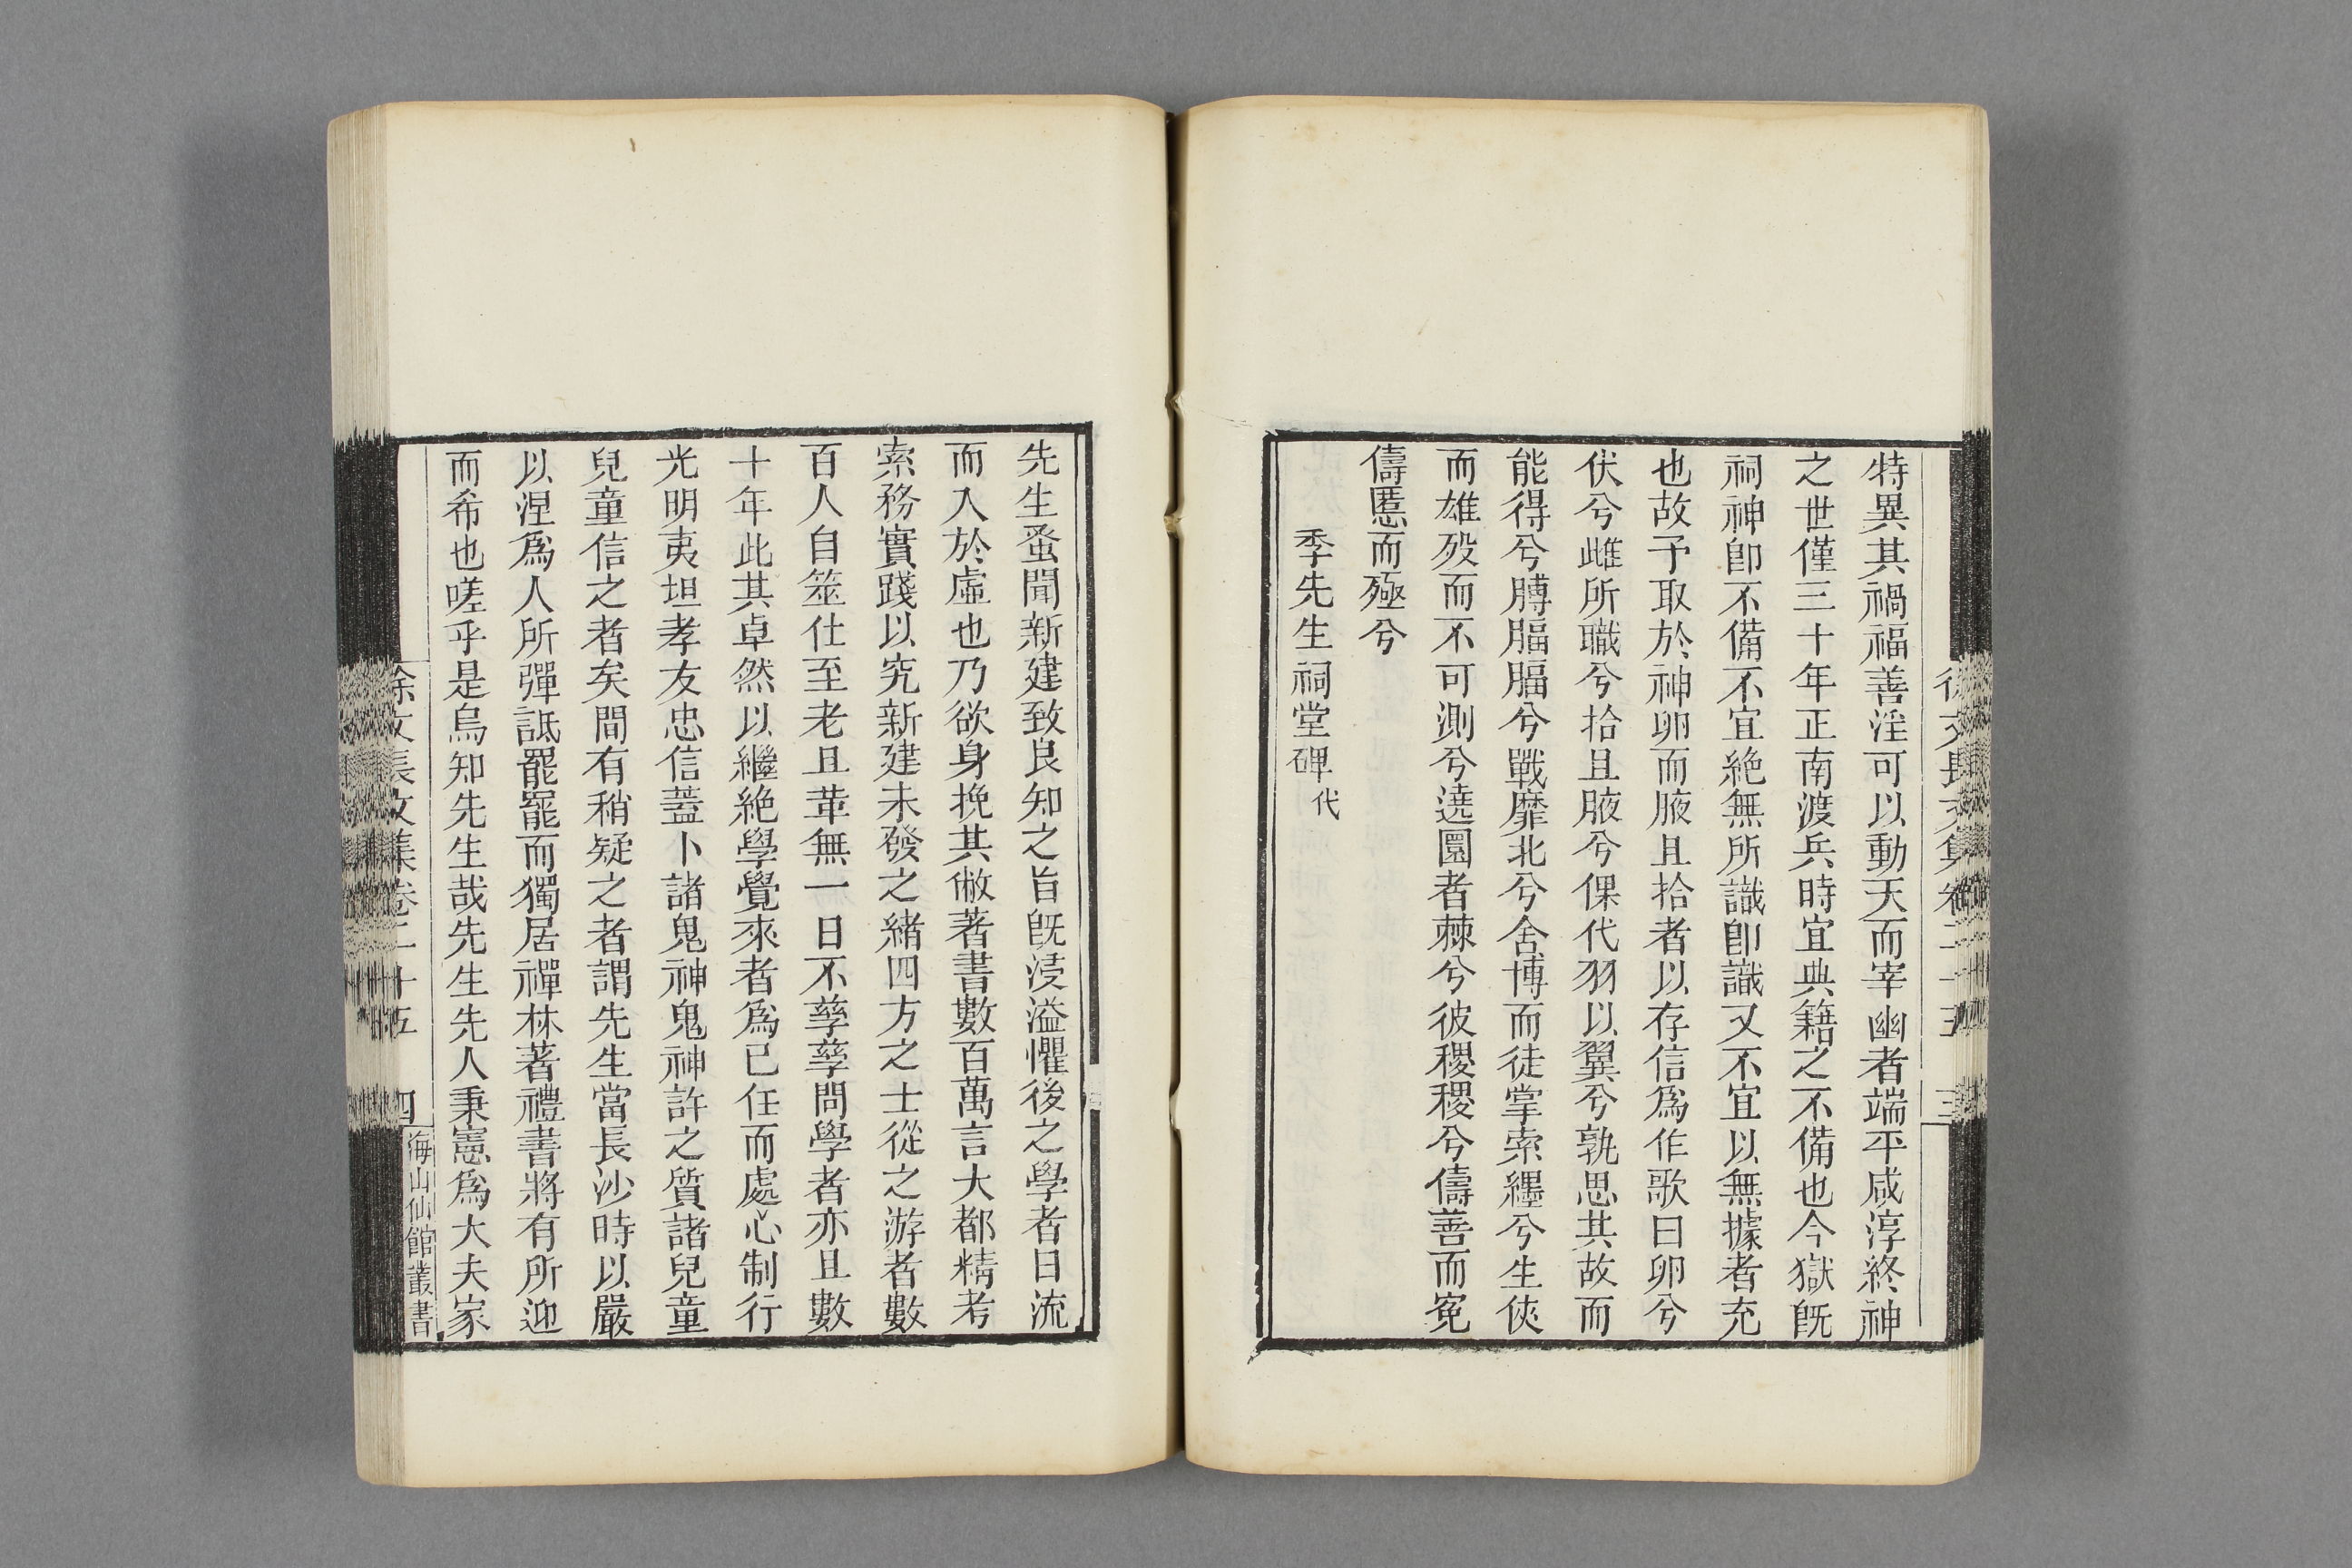 特異其禍福善淫可以動天而宰幽者端平咸淳終神
之世僅三十年正南渡兵時宜典籍之不備也今獄旣
祠神卽不備不宜絶無所識卽識又不宜以無據者充
也故予取於神卵而腋且拾者以存信爲作歌曰卵兮
伏兮雌所職兮拾且腋兮倮代羽以翼兮孰思其故而
能得兮膊腷腷兮戰靡北兮舍博而徒掌索纆兮生俠
而雄歿而不可測兮遶圜者棘兮彼稷稷兮儔善而寃
儔慝而殛兮
季先生祠堂碑代
徐文長文集卷二十五
三
先生蚤聞新建致良知之旨旣浸溢懼後之學者日流
而入於虛也乃欲身挽其敝著書數百萬言大都精考
索務實踐以究新建未發之緒四方之士從之游者數
百人自筮仕至老且革無一日不孳孳問學者亦且數
十年此其卓然以繼絶學覺來者爲已任而處心制行
光明夷坦孝友忠信蓋卜諸鬼神鬼神許之質諸兒童
兒童信之者矣間有稍疑之者謂先生當長沙時以嚴
以涅爲人所彈詆罷罷而獨居禪林著禮書將有所迎
而希也嗟乎是烏知先生哉先生先人秉憲爲大夫家
徐文長文集卷二十五
四
海山仙館叢書